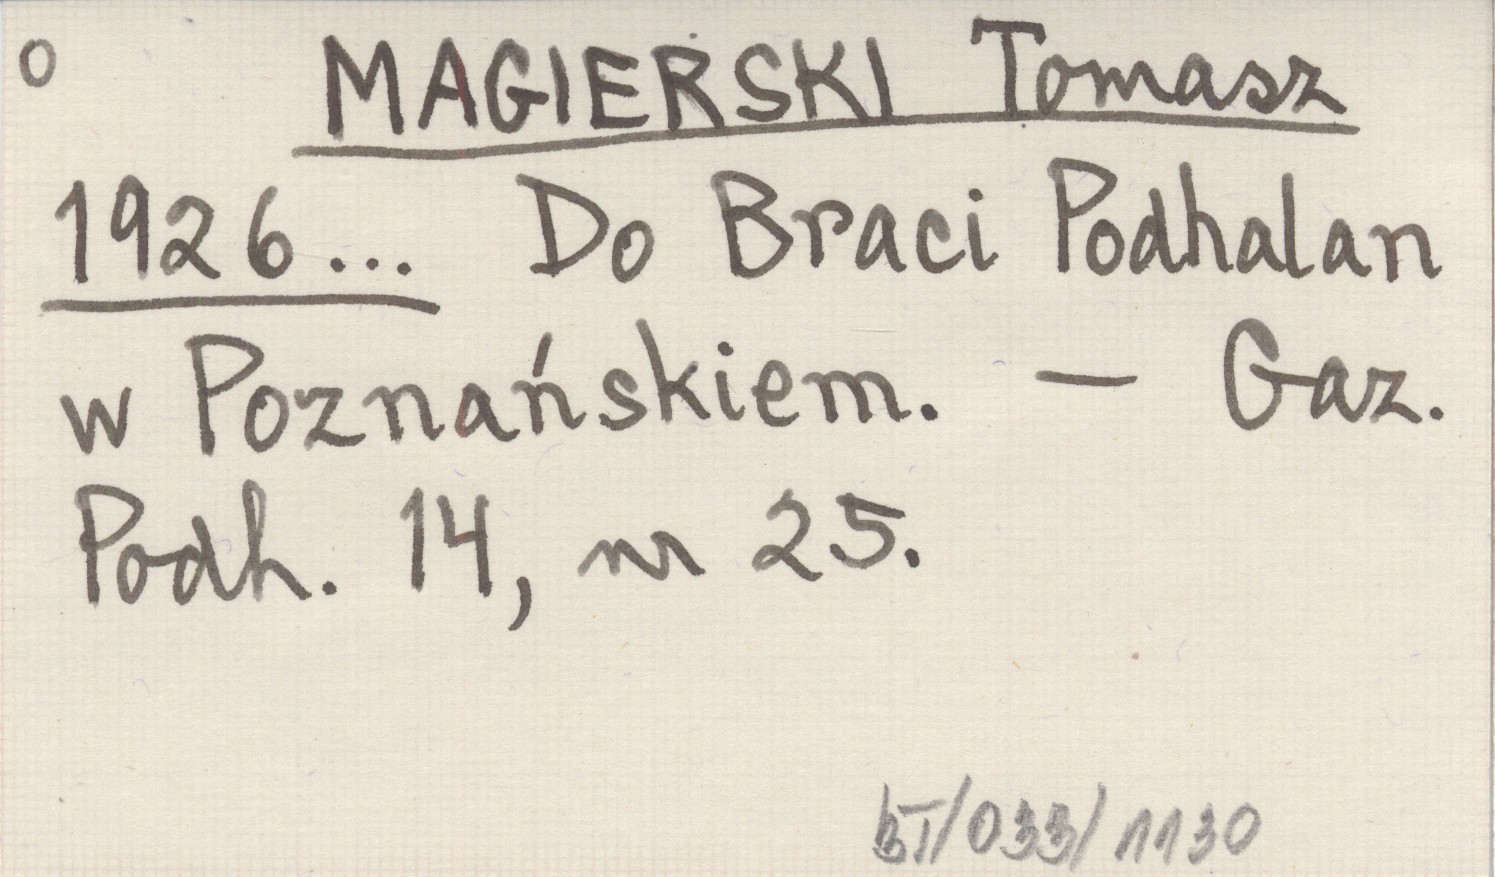 o MAGIERSKI Tomasz
1926... Do Braci Podhalan
w Poznańskiem. — Gaz.
Podh. 14, nr 25.
/033/1130